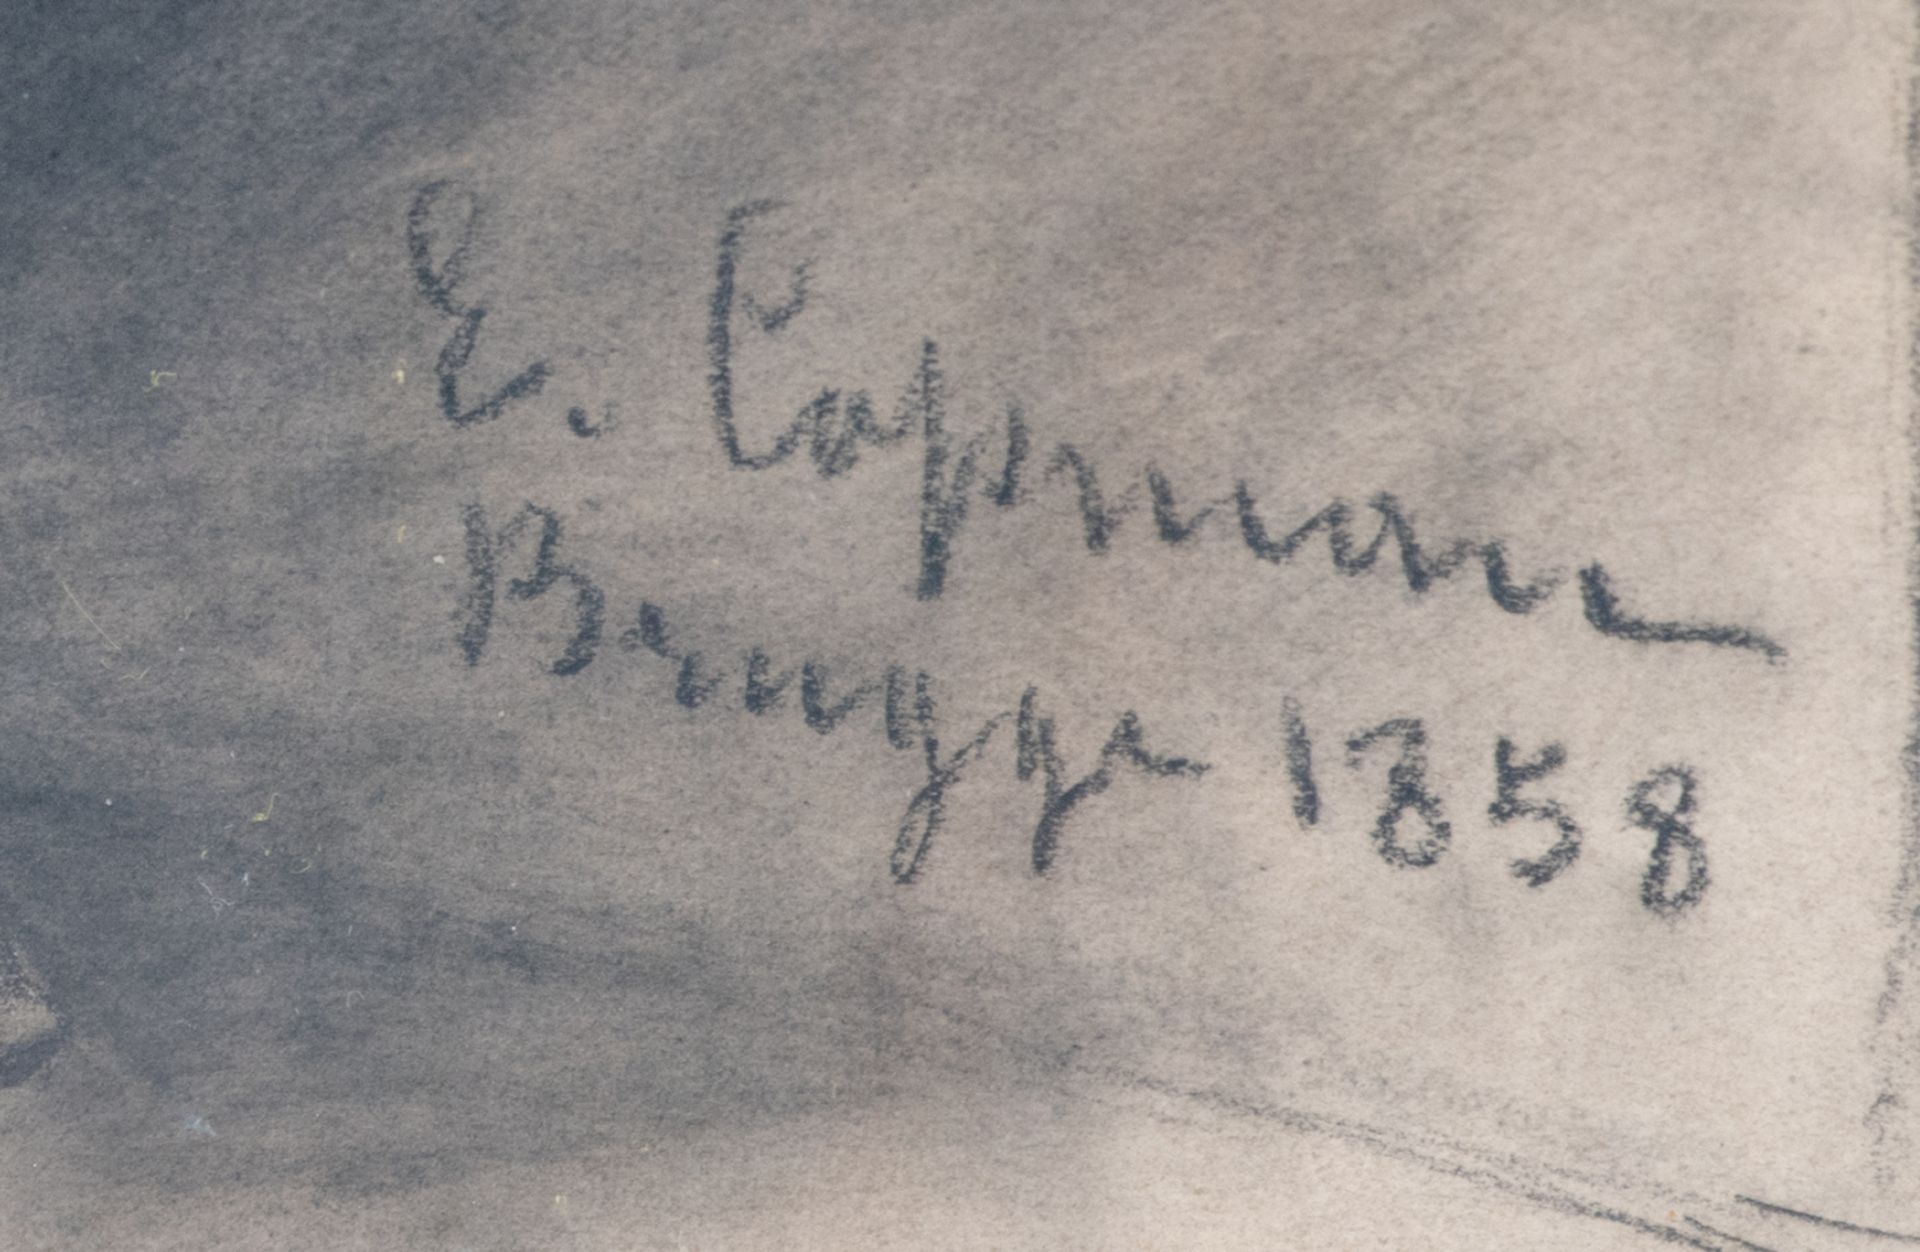 E. Copman
Brugge 1858